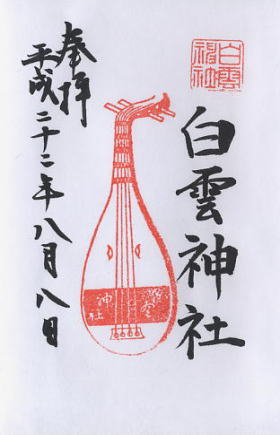 白雲神社
白雲神社
奉拝
平成二十二年八月八日
神社